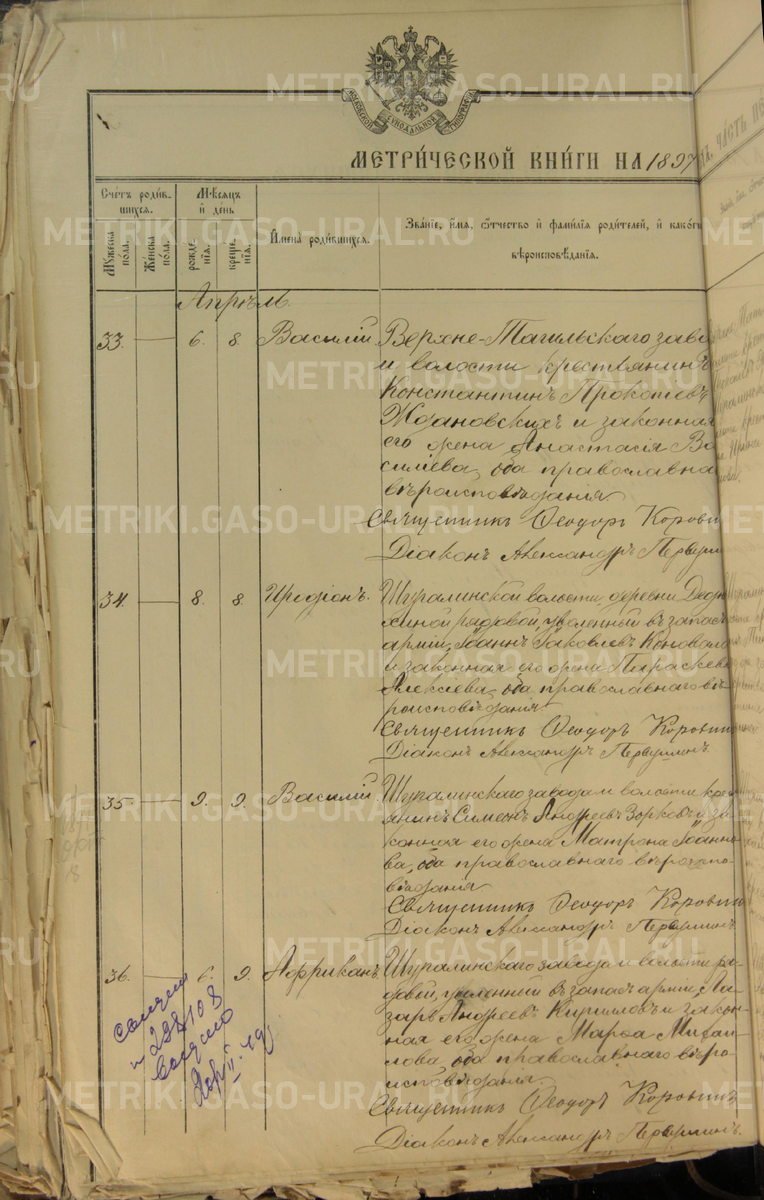 МОСКОВСКОЙ СѴНОДАЛЬНОЙ ТИПОГРАФІИ
МЕТРИ́ЧЕСКОЙ КНИ́ГИ НА 1897
Сче́тъ роди́в-
шихся.
Мѣ́сяцъ
и҆ де́нь
Мꙋ́жеска по́ла.
Же́нска по́ла.
рожде́-нїя.
креще́-нїя.
И҆мена̀ роди́вшихся.
Зва́нїе, и҆́мѧ, ѻ҆́тчество и҆ фами́лїѧ роди́телей, и҆ како́гѡ
вѣроисповѣ́данїѧ.
Апрѣль.
33. 6. 8. Василій Верхне-Тагильскаго заво
и волости крестьянинъ
Константинъ Прокопьевъ
Ждановскихъ и законная
его жена Анастасія Ва
силіева, оба православна
вѣроисповѣданія
Священникъ Ѳеодоръ Коровин
Діаконъ Александръ Первуши
34. 8. 8. Иродіонъ. Шуралинской волости, деревни
рядовой, уволенный въ запасъ
арміи, Іоаннъ Іаковлевъ Коновало
и законная его жена Параскева
Алексіева, оба православнаго вѣ-
роисповѣданія
Священникъ Ѳеодоръ Коровинъ
Діаконъ Александръ Первушинъ.
35. 9. 9. Василій Шуралинскаго завода и волости кре
янинъ Симеонъ Андреевъ Зорковъ и за
конная его жена Матрона Іоанно
ва, оба православнаго вѣроиспо-
вѣданія
Священникъ Ѳеодоръ Коровинъ
Діаконъ Александръ Первушинъ.
36. 6. 9. Африканъ Шуралинскаго завода и волости ря-
довой, уволенный въ запасъ арміи, Ла
зарь Андреевъ Кирилловъ и закон
ная его жена Марѳа Михаи
лова, оба православнаго вѣро-
исповѣданія
Священникъ Ѳеодоръ Коровинъ
Діаконъ Александръ Первушинъ.
METRIKI.GASO-URAL.RU